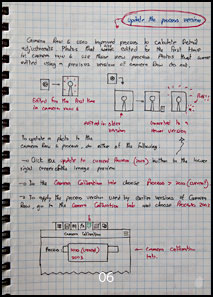 Update the process version
Camera Raw 6 uses improved process to calculate Detail
adjustments. Photos that were edited in the first time
in camera raw 6 use those new process. Photos that were
edited using a previous version of camera Raw do not.
Edited for the first time
in camera raw 6
edited in older
version
converted to a
newer version
To update a photo to the
camera Raw 6 process, do either of the following:
→ Click the update to current process (2010) button in the lower
right corner of the image preview
→ In the Camera Calibration tab choose Process > 2010 (current).
→ To apply the process version used by earlier versions of Camera
Raw, go to the Camera Calibration tab and choose Process > 2003
Camera Calibration
Process
2010 (current)
2003
Camera Calibration
tab.
06